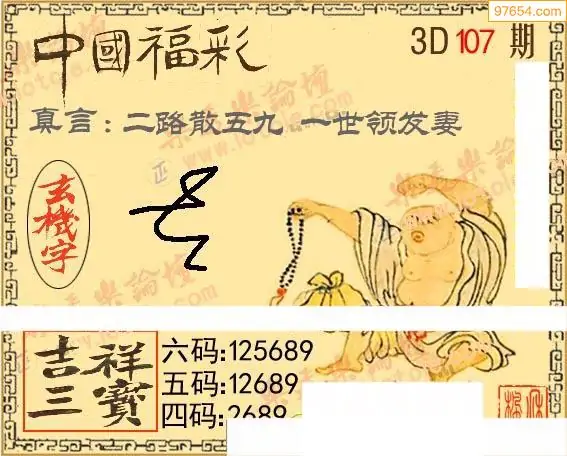 97654.com
中國福彩
3D 107 期
真言：二路散五九 一世领发妻
玄機字
吉祥三寶
六码:125689
五码:12689
四码:2689